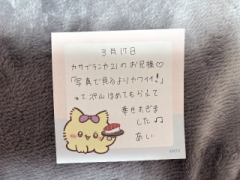 3月17日
カサブランカ21のお兄様♡
「写真で見るよりカワイイ!」
って沢山ほめてもらえて
幸せすぎました♫
あい